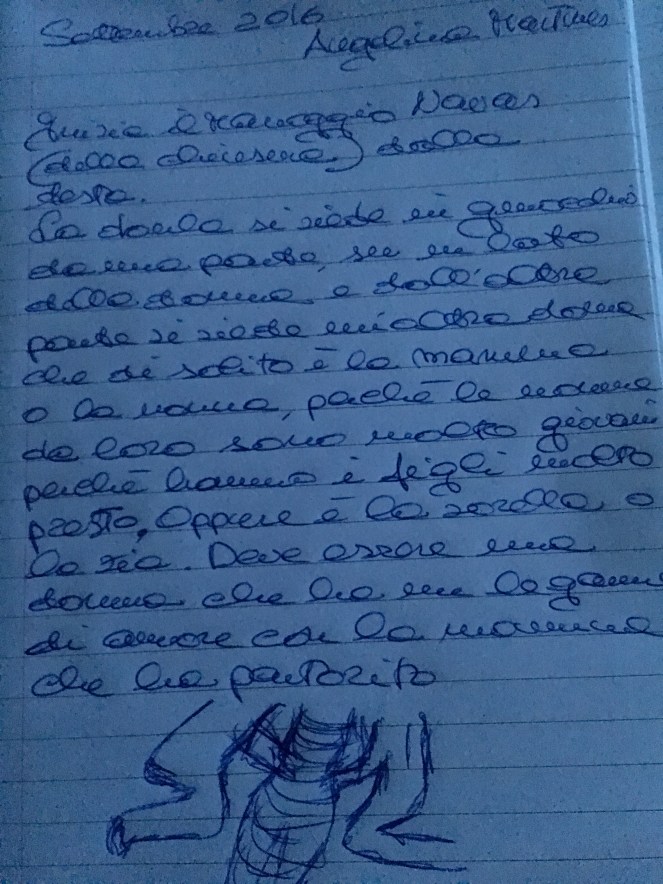 Settembre 2016
Angelina Martines
Inizia il Massaggio
(della chiusura) dalla
testa.
La doula si siede in ginocchio
da una parte, su un lato
della donna e dall'altra
parte si siede un'altra donna
che di solito è la mamma
o la nonna, perché le nonne
da loro sono molto giovani
perché hanno i figli molto
presto, oppure è la sorella o
la zia. Deve essere una
donna che ha un legame
di amore con la mamma
che ha partorito